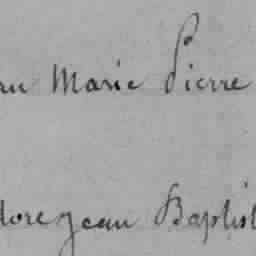 Marie Pierre
jean Baptist